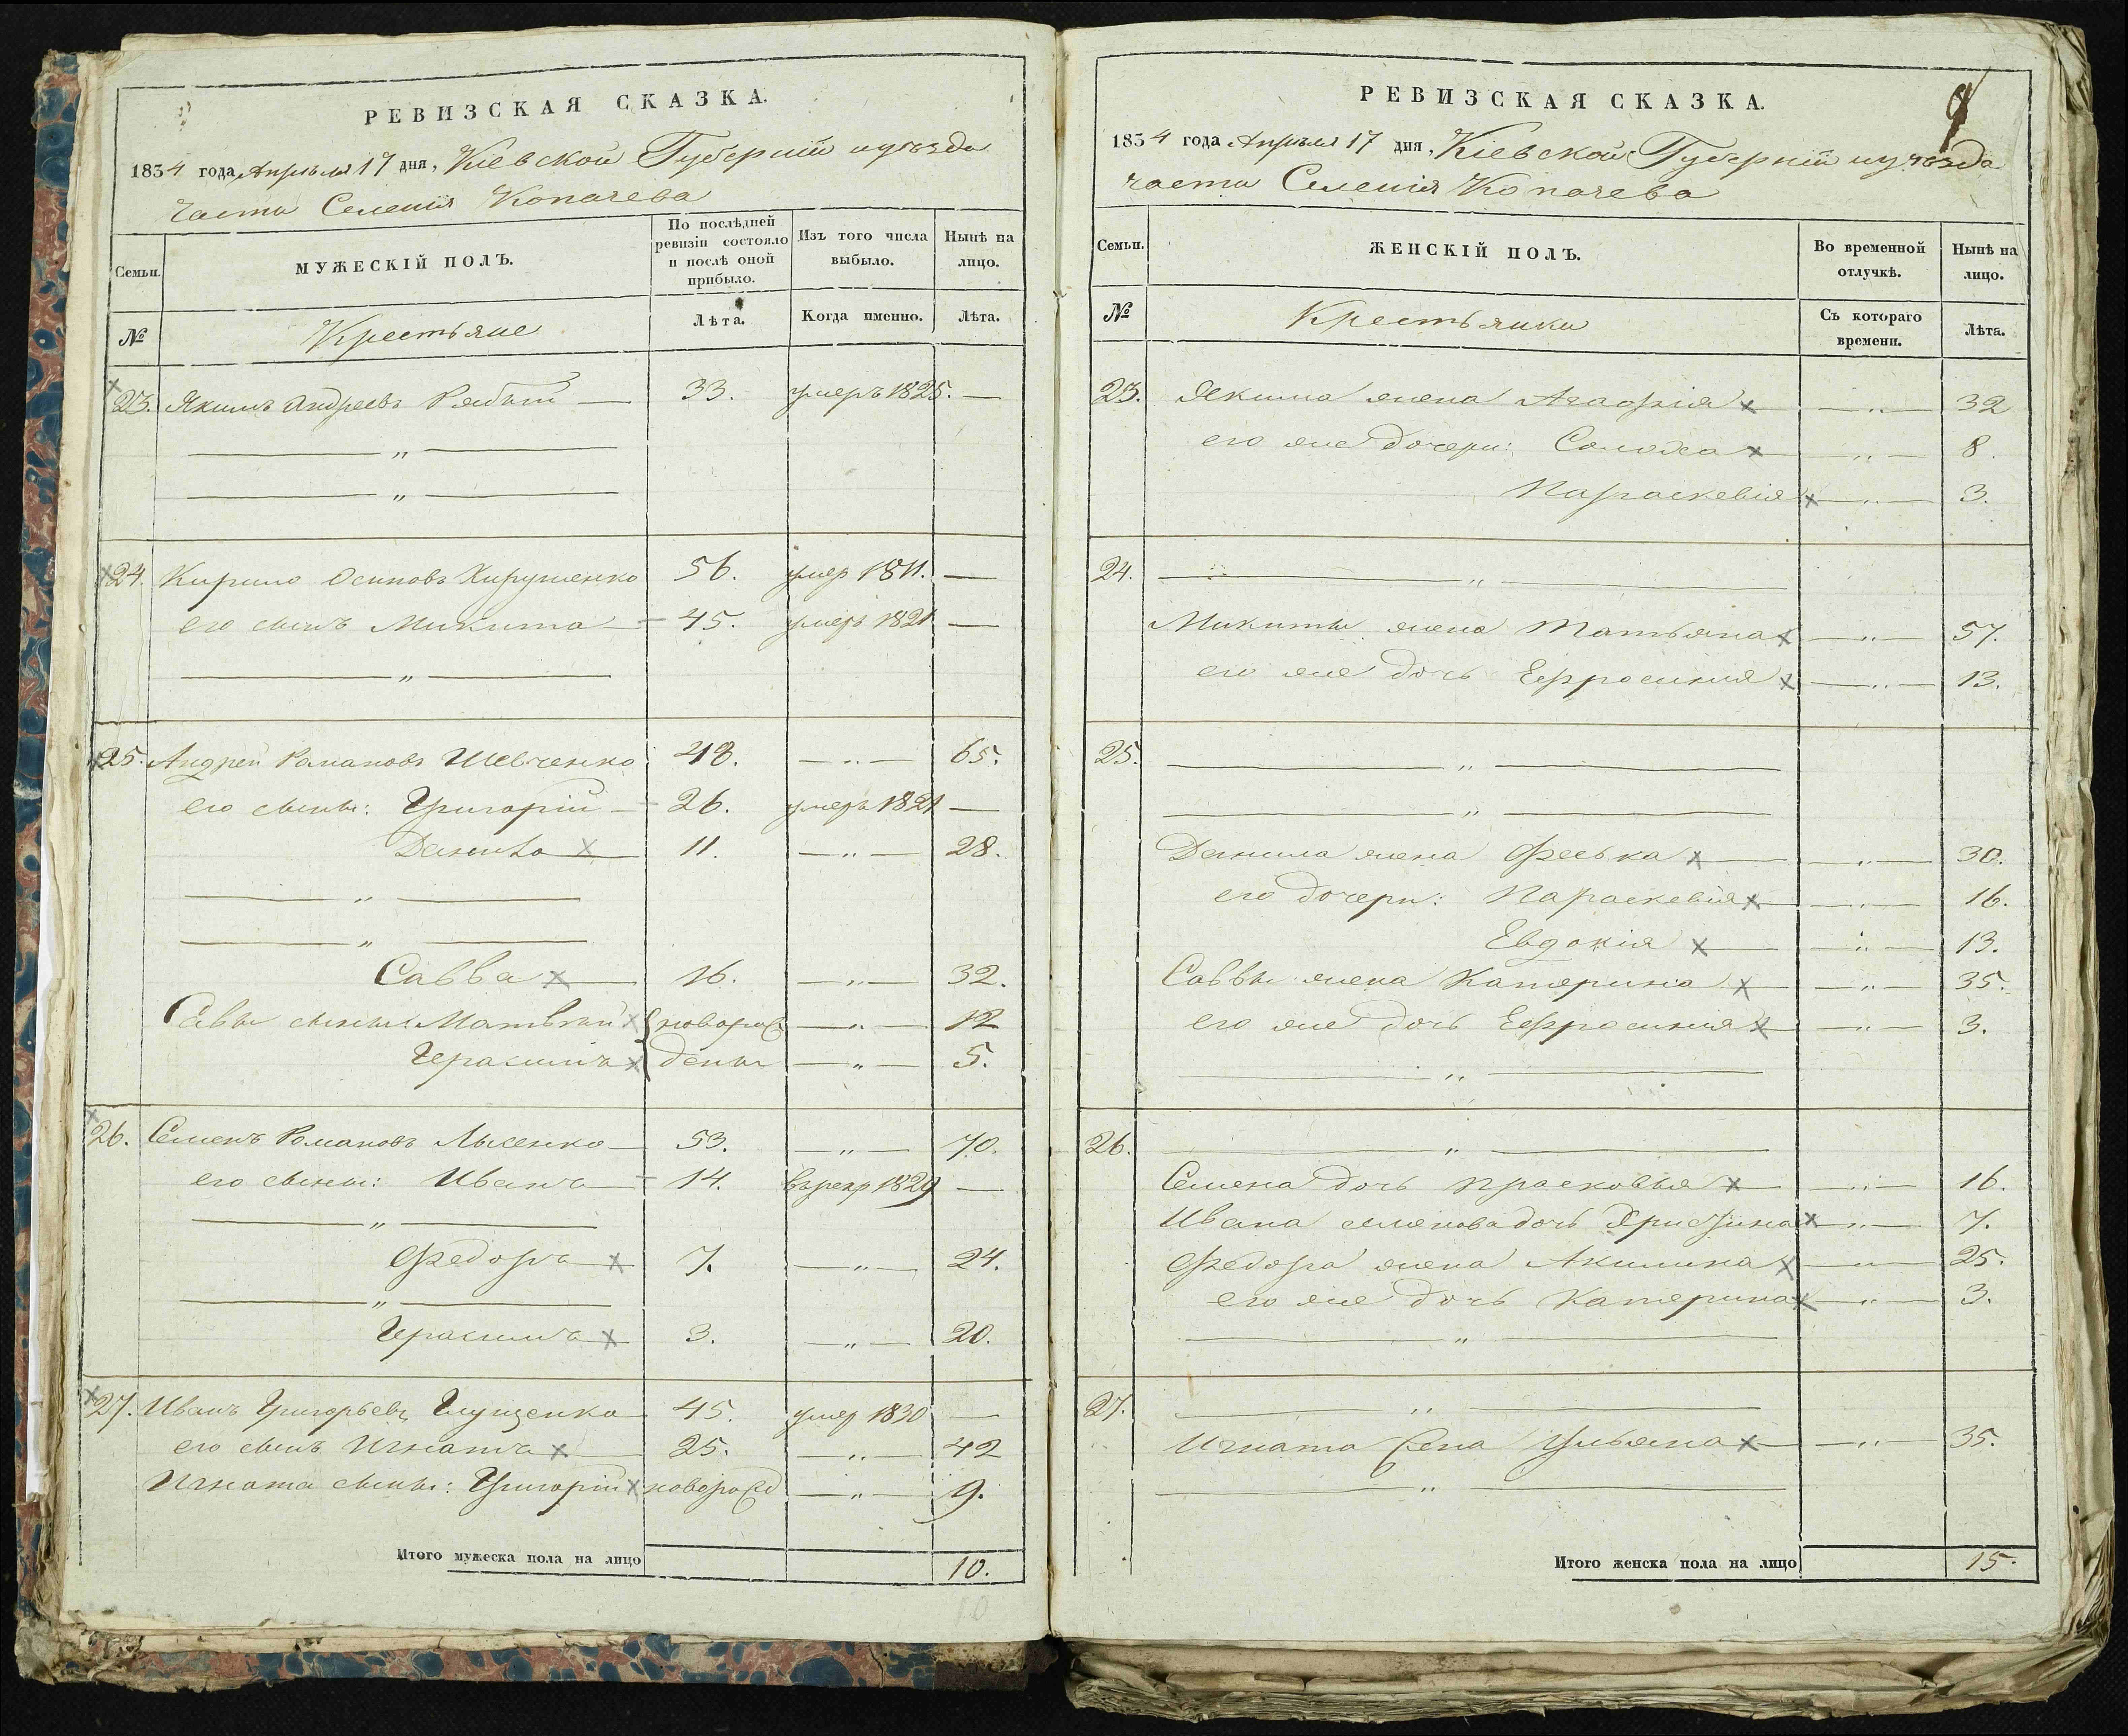 РЕВИЗСКАЯ СКАЗКА.
1834 года Апрѣля 17 дня, Кіевской Губерніи и уѣзда
части Селенія Копачева
Семьи. МУЖЕСКІЙ ПОЛЪ. По послѣдней ревизіи состояло и послѣ оной прибыло. Изъ того числа выбыло. Нынѣ на лицо.
№ Крестьяне Лѣта. Когда именно. Лѣта.
23. Якимъ Андреевъ Рябый — 33. умеръ 1825. —
— „ —
— „ —
24. Кирило Осиповъ 56. умер 1811. —
его сынъ Микита — 45. умеръ 1821 —
— „ —
25. Андрей Романовъ Шевченко 48. — „ — 65.
его сыны: Григорій — 26. умеръ 1821 —
Данило х 11. — „ — 28.
— „ —
— „ —
Савва х 16. — „ — 32.
Савы сыны Матвѣй х новорож — „ — 12
Герасимъ х дены — „ — 5.
26. Семенъ Романовъ Лысенко — 53. — „ — 70.
его сыны: Иванъ — 14. въ рекр 1829 —
— „ —
Федоръ х 7. — „ — 24.
— „ —
Герасимъ х 3. — „ — 20.
27. Иванъ Григорьевъ Глущенко 45. умер 1830 —
его сынъ Игнатъ х 25. — „ — 42
Игната сыны: Григорій х новорожд — „ — 9.
Итого мужеска пола на лицо 10.
10
9
РЕВИЗСКАЯ СКАЗКА.
1834 года Апрѣля 17 дня, Кіевской Губерніи и уѣзда
части Селенія Копачева
Семьи. ЖЕНСКІЙ ПОЛЪ. Во временной отлучкѣ. Нынѣ на лицо.
№ Крестьянки Съ котораго времени. Лѣта.
23. Якима жена Агафія х — „ — 32
его же дочери: Солоха х — „ — 8.
Параскевія х — „ — 3.
24. — „ —
Микиты жена Татьяна х — „ — 57.
его же дочь Ефросинія х — „ — 13.
25. — „ —
— „ —
Данила жена Феська х — „ — 30.
его дочери: Параскевія х — „ — 16.
Евдокія х — „ — 13.
Саввы жена Катерина х — „ — 35.
его же дочь Ефросинія х — „ — 3.
— „ —
26. — „ —
Семена дочь Прасковья х — „ — 16.
Ивана семенова дочь Христина х — „ — 7.
Федора жена Акилина х — „ — 25.
его же дочь Катерина х — „ — 3.
— „ —
27. — „ —
Игната жена Ульяна х — „ — 35.
— „ —
Итого женска пола на лицо 15.